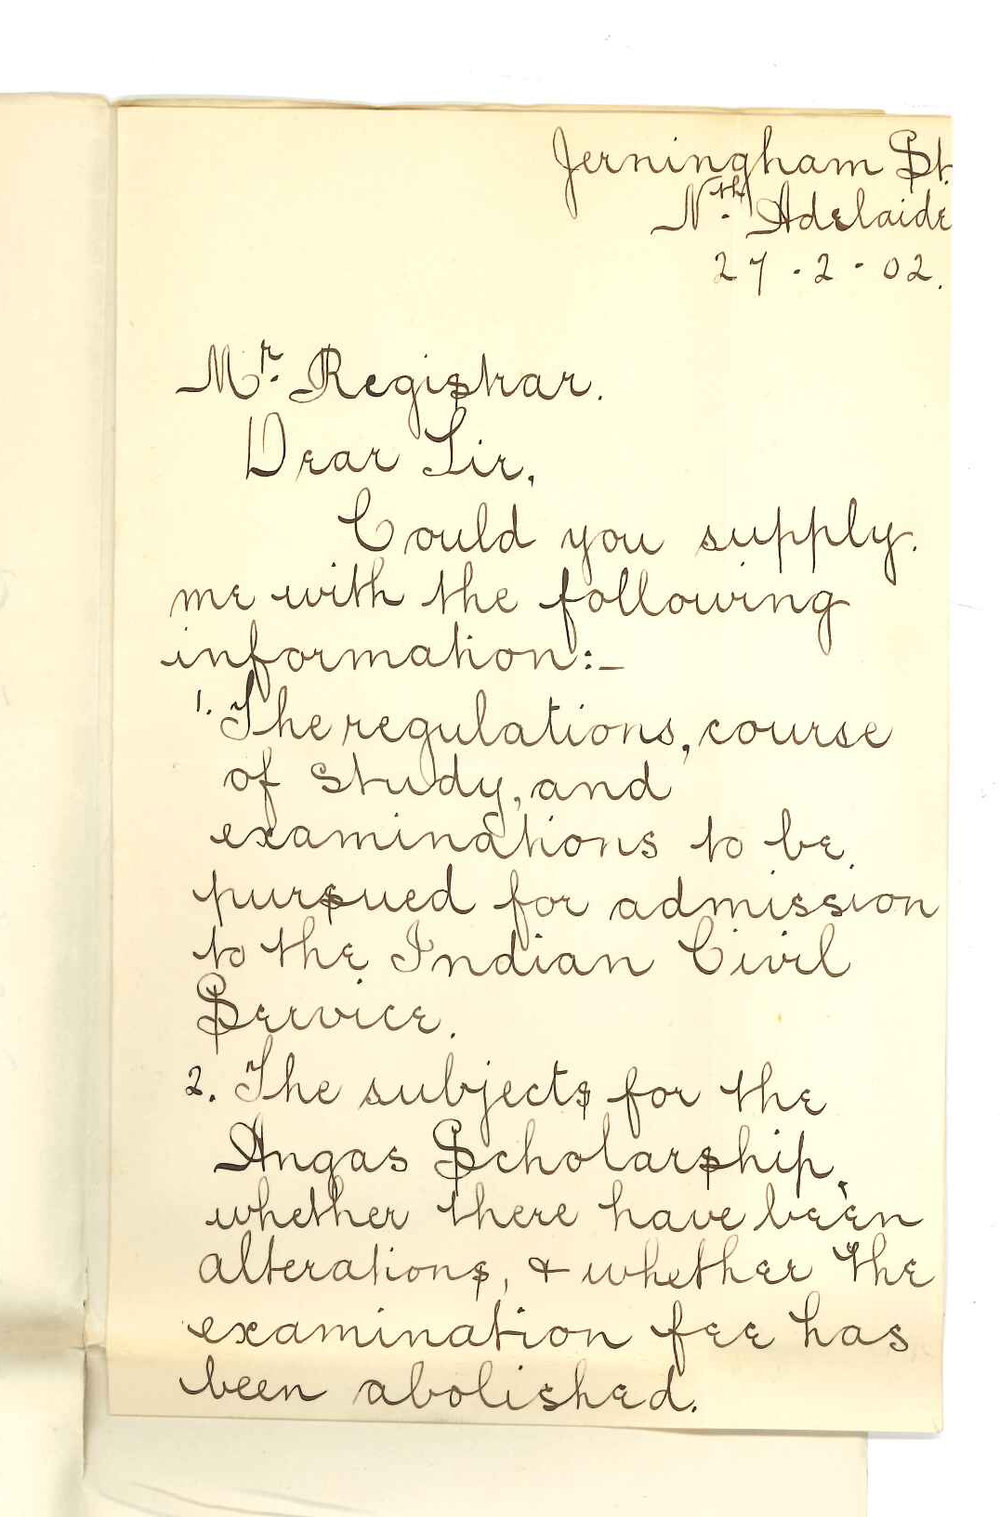 Jerningham St.
Nth. Adelaide
27-2-02.
Mr. Registrar.
Dear Sir,
Could you supply
me with the following
information:-
1. The regulations, course
of study, and
examinations to be
pursued for admission
to the Indian Civil
Service.
2. The subjects for the
Angas Scholarship,
whether there have been
alterations, & whether the
examination fee has
been abolished.